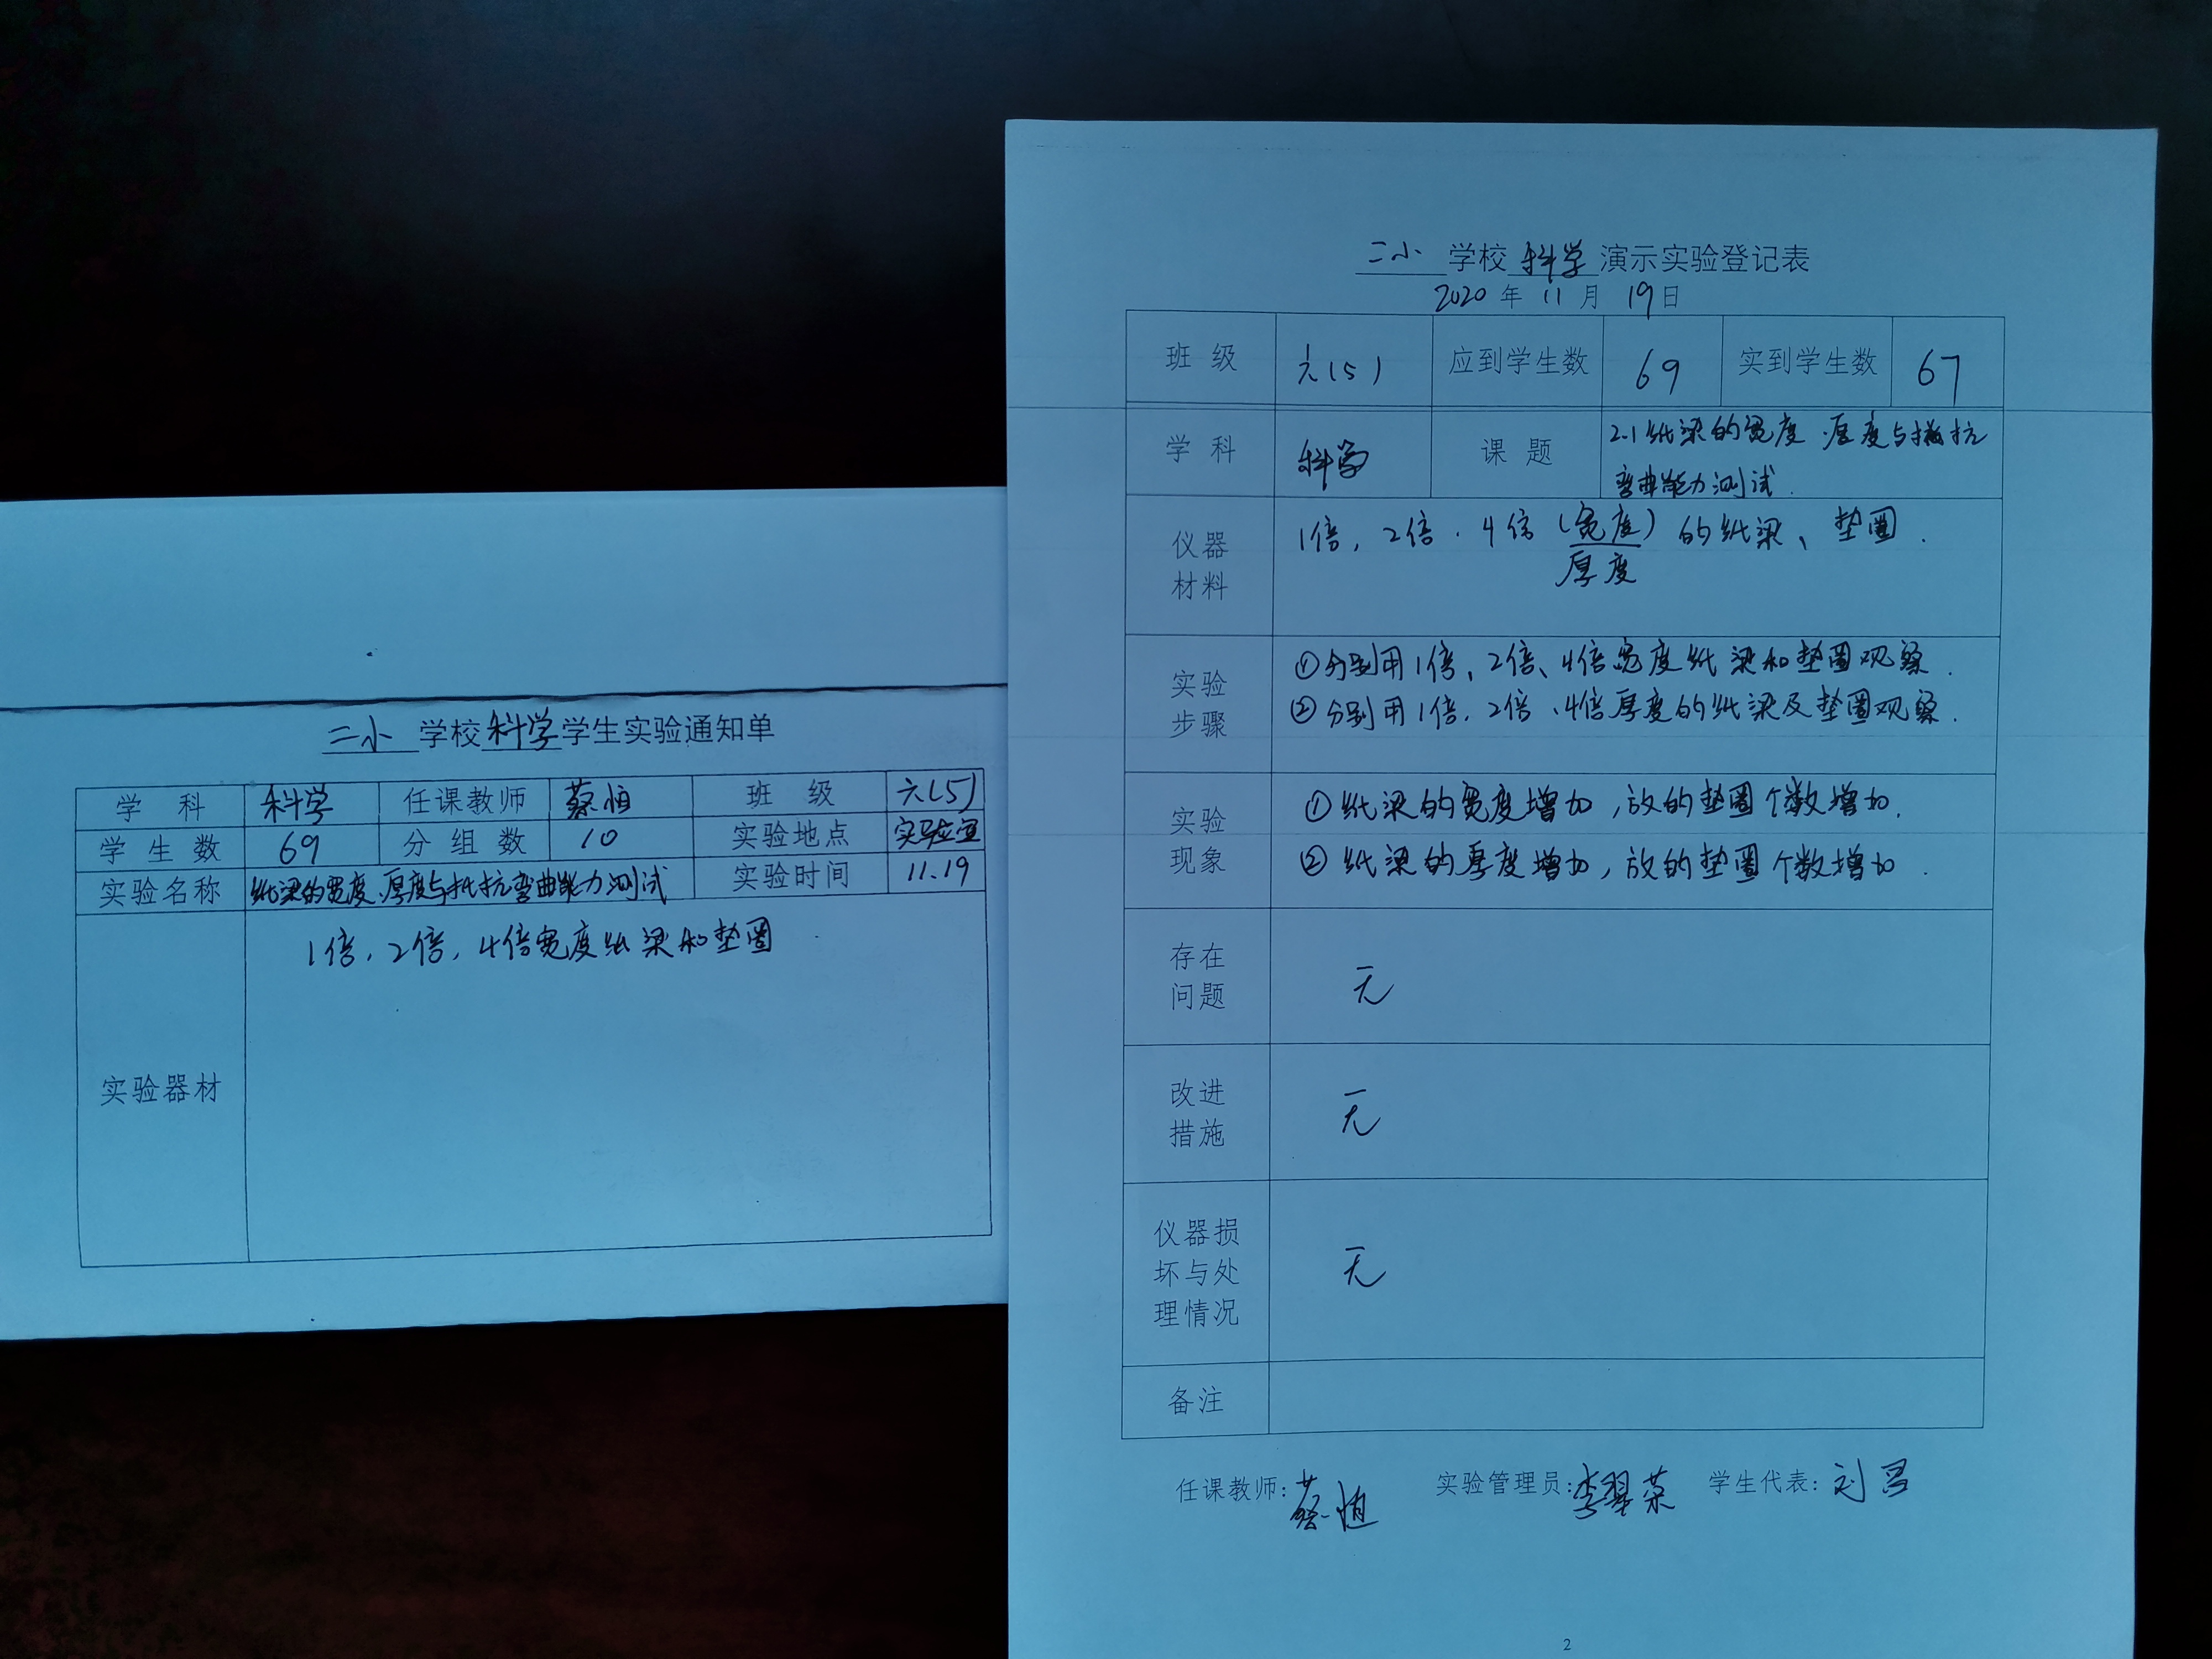 二小学校科学学生实验通知单
学科 科学 任课教师 蔡恒 班级 六(5)
学生数 69 分组数 10 实验地点 实验室
实验名称 纸梁的宽度、厚度与抵抗弯曲能力测试 实验时间 11.19
实验器材 1倍，2倍，4倍宽度纸梁和垫圈
二小学校科学演示实验登记表
2020年11月19日
班级 六(5) 应到学生数 69 实到学生数 67
学科 科学 课题 2.1纸梁的宽度、厚度与抵抗
弯曲能力测试.
仪器
材料
1倍，2倍．4倍(宽度)的纸梁、垫圈．
厚度
实验
步骤
①分别用1倍、2倍、4倍宽度纸梁和垫圈观察．
②分别用1倍．2倍、4倍厚度的纸梁及垫圈观察．
实验
现象
①纸梁的宽度增加，放的垫圈个数增加．
②纸梁的厚度增加，放的垫圈个数增加．
存在
问题
无
改进
措施
无
仪器损
坏与处
理情况
无
备注
任课教师：蔡恒 实验管理员：李翠荣 学生代表：刘
2